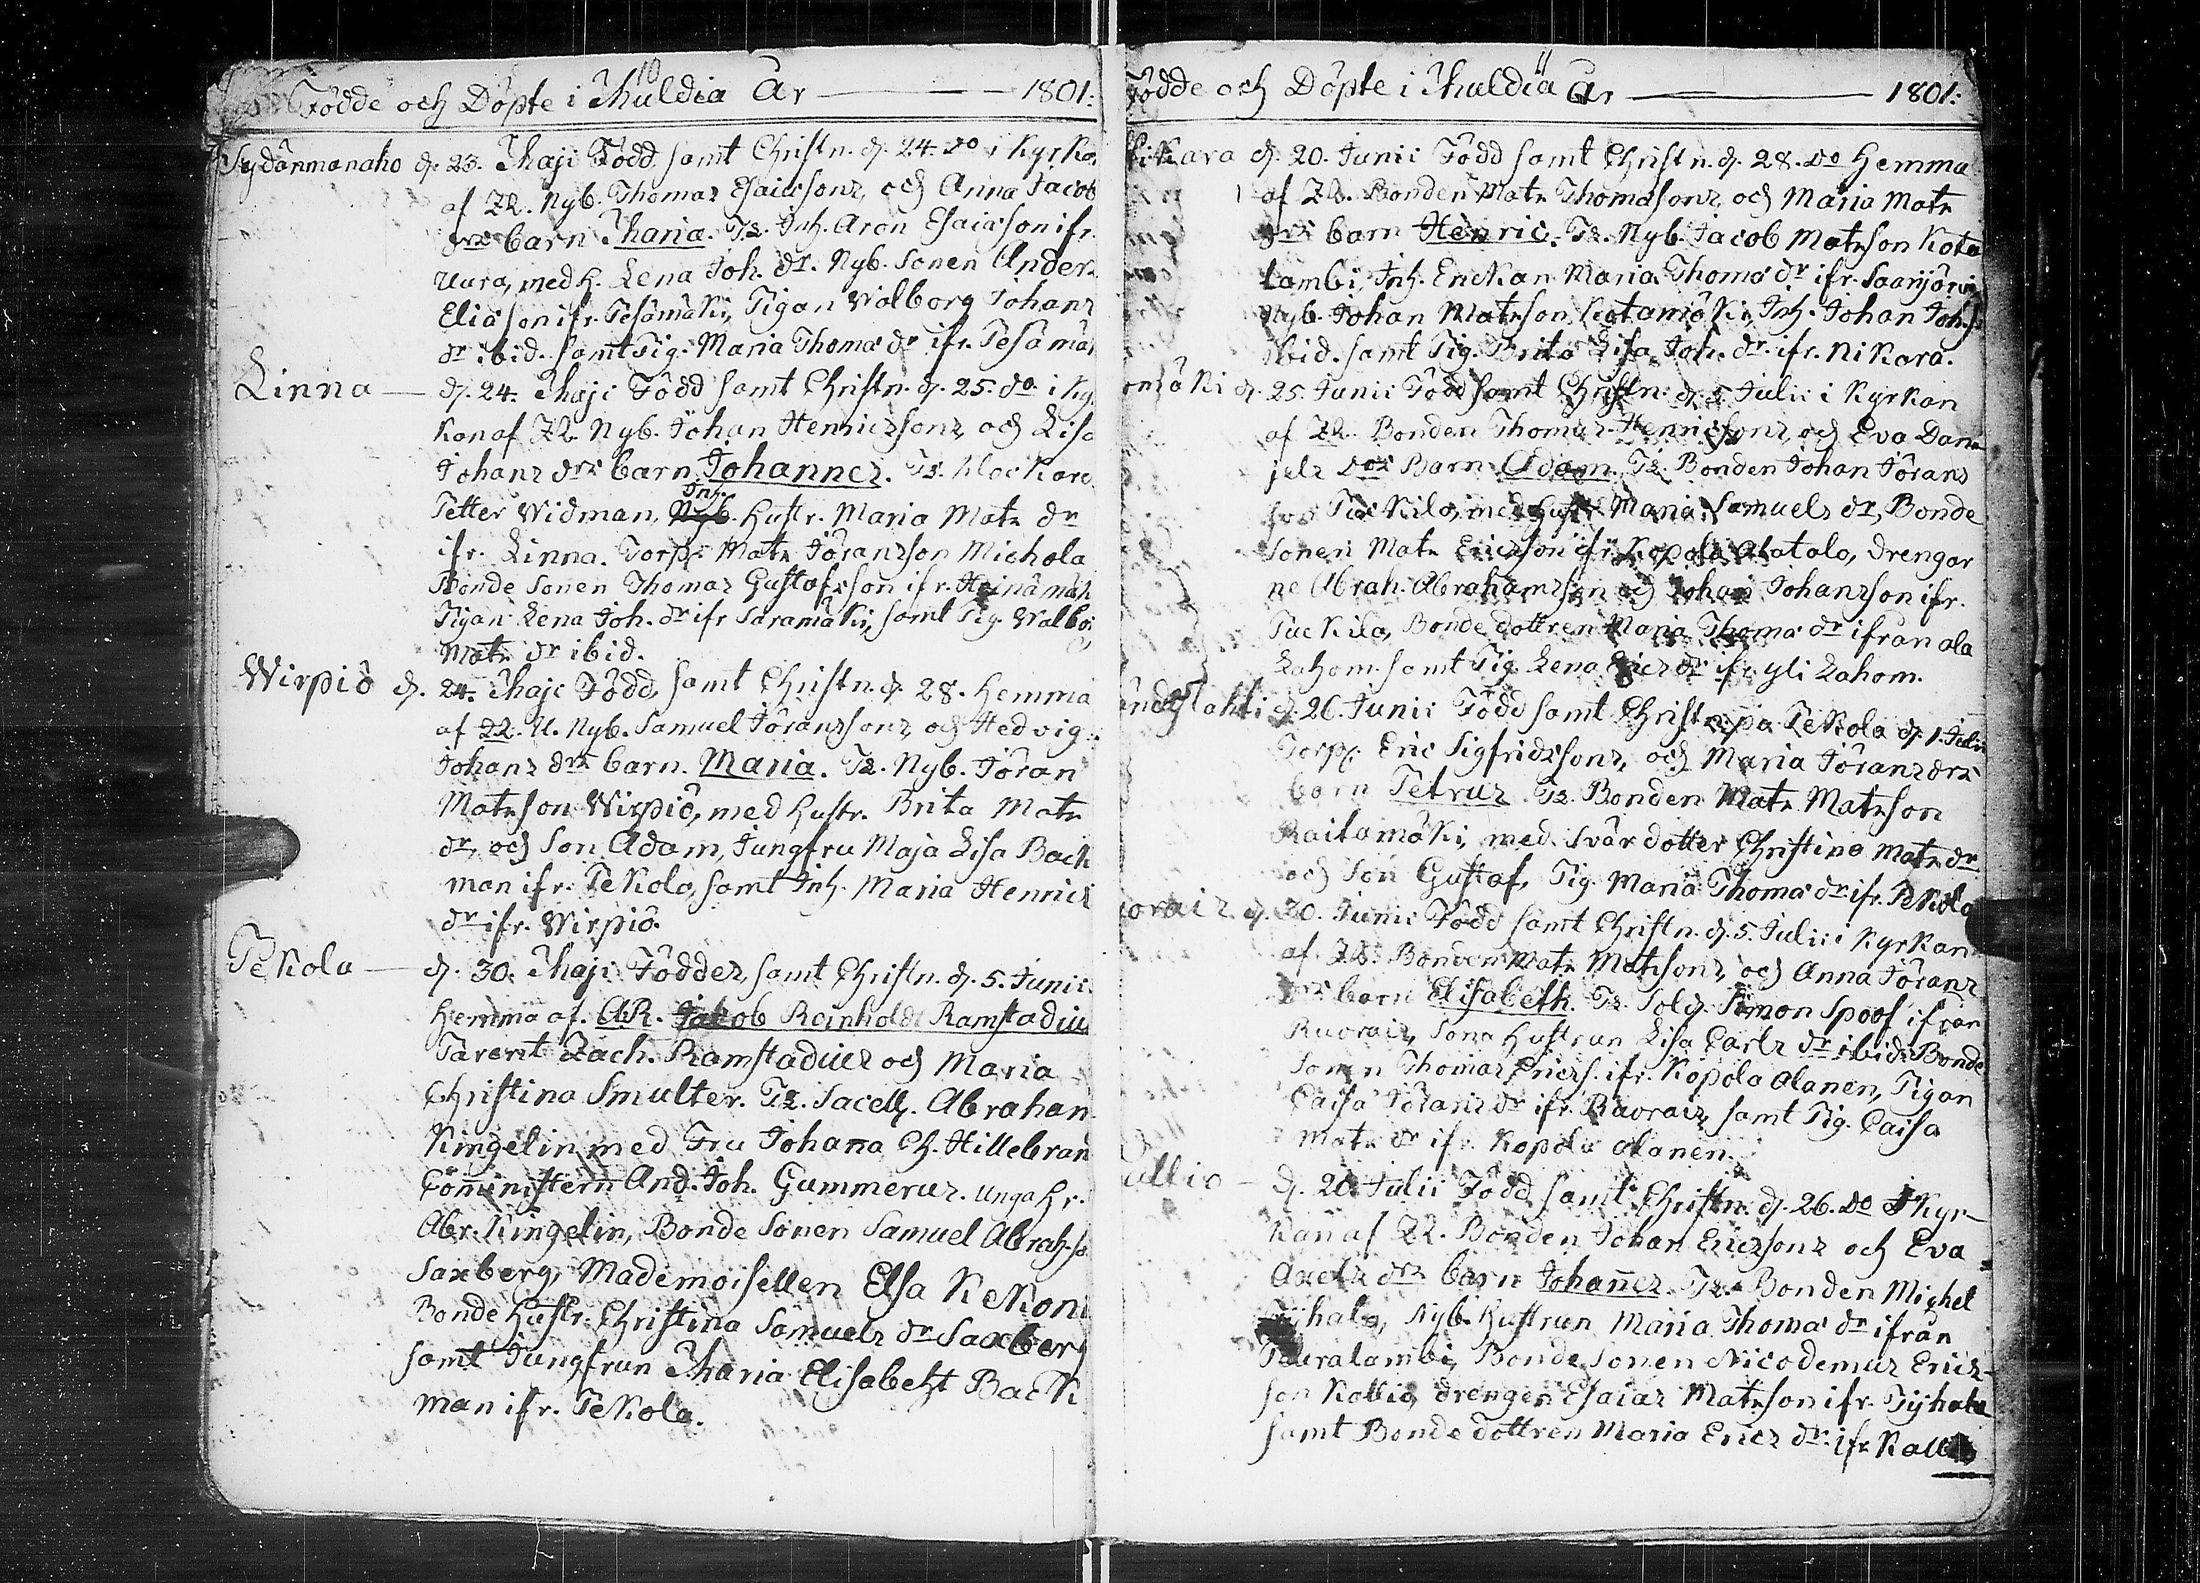 10
Födde och Döpte i Muldia År — 1801:
Sydänmanaho d. 23. Maji Född samt Christn. d. 24. do i Kyrko
af ÆÆ. Nyb. Thomas Esaicsons, och Anna Jacob
drs barn Maria. Ts. Inh. Aron Esaicson ifr.
Uura, med H. Lena Joh. dr. Nyb. Sonen Anders
Eliæson ifr. Pesämäki, Pigan Walborg Johans
dr ibid. samt Pig. Maria Thomæ dr ifr. Pesämä
Linna — d. 24. Maji Född samt Christn. d. 25. do i Ky
kan af ÆÆ. Nyb. Johan Henricsons, och Lisa
Johans drs barn Johannes. Ts. Klockare
Petter Widman, Inh. Hustr. Maria Mats dr
ifr. Linna. Torp. Mats Jöransson Michola
Bonde Sonen Thomas Gustafsson ifr. Heinämäk
Pigan Lena Joh. dr ifr Saramäki, samt Pig. Walbo
Mats dr ibid.
Wirpiö d. 24. Maji Född, samt Christn. d. 28. Hemma
af ÆÆ. U. Nyb. Samuel Jöranssons, och Hedvig
Johans drs barn. Maria. Ts. Nyb. Jöran
Matsson Wirpiö, med Hustr. Brita Mats
dr, och Son Adam, Jungfru Maja Lisa Back
man ifr. Pekola, samt Inh. Maria Henrics
dr ifr. Wirpiö.
Pekola — d. 30. Maji Föddes, samt Christn. d. 5. Junii
Hemma af. AR. Jakob Reinhold Ramstadius
Parent Zach. Ramstadius och Maria
Christina Smulter. Ts. Sacell. Abraham
Kingelin med Fru Johana Ch. Hillebran
Com̄inistern And. Joh. Gummerus. Unga Hr.
Abr. Kingelin, Bonde Sonen Samuel Abrah.so
Saxberg, Mademoisellen Elsa Kekoni
Bonde Hustr. Christina Samuels dr Saxberg
samt Jungfrun Maria Elisabeht Back
man ifr. Pekola.
11
Födde och Döpte i Muldia År — 1801:
kikara d. 20. Junii Född samt Christn. d. 28. do Hemma
af ÆÆ. Bonden Mats Thomasons, och Maria Mats
drs barn Henric. Ts. Nyb. Jacob Matsson Kota
lambi, Inh. Enckan Maria Thomæ dr ifr. Saarijärvi
Nyb. Johan Matsson Kotamäki, Inh. Johan Joh.s
ibid. samt Pig. Brita Lisa Joh. dr. ifr. Kikara.
omäki d. 25. Junii Född samt Christn. d. 5 Julii i Kyrkan
af ÆÆ. Bonden Thomas Henricsons, och Eva Dan
iels drs Barn Adam. Ts. Bonden Johan Jörans
son Puckila, med Hustr. Maria Samuels dr, Bonde
Sonen Mats Ericsson ifr. Kopola Alatalo, drengar
ne Abrah. Abrahamsson och Johan Johansson ifr.
Puckila, Bonde dottren Maria Thomæ dr ifrån ala
Lahom. samt Pig. Lena Erics dr ifr. yli Lahom.
lahti d. 26. Junii Född samt Christn. på Pekola d. 1. Julii
Torp. Eric Sigfridssons, och Maria Jörans drs
barn Petrus. Ts. Bonden Mats Matsson
Raitamäki, med Svär dotter Christina Mats dr
och Son Gustaf, Pig. Maria Thomæ dr ifr. Pekola
orais d. 30. Junii Född samt Christn. d. 5. Julii i Kyrkan
af ÆÆ. Bonden Mats Matssons, och Anna Jörans
drs barn Elisabeth. Ts. Sold. Simon Spoof ifrån
Ruorais, Sone Hustrun Lisa Carls dr ibid. Bonde
Sonen Thomas Erics. ifr. Kopola Alanen, Pigan
Caisa Jörans dr ifr. Ruorais, samt Pig. Caisa
Mats dr ifr. Kopola alanen.
allio — d. 20. Julii Född samt Christn. d. 26. do i Kyr-
kan af ÆÆ. Bonden Johan Ericsons och Eva
Axels drs barn Johan̄es. Ts. Bonden Michel
Tyhala, Nyb. Hustrun Maria Thomæ dr ifrån
Peuralambi, Bonde Sonen Nicodemus Erics-
son Kallio, drengen Esaias Matsson ifr. Tyhala
samt Bonde dottren Maria Erics dr. ifr Kallio